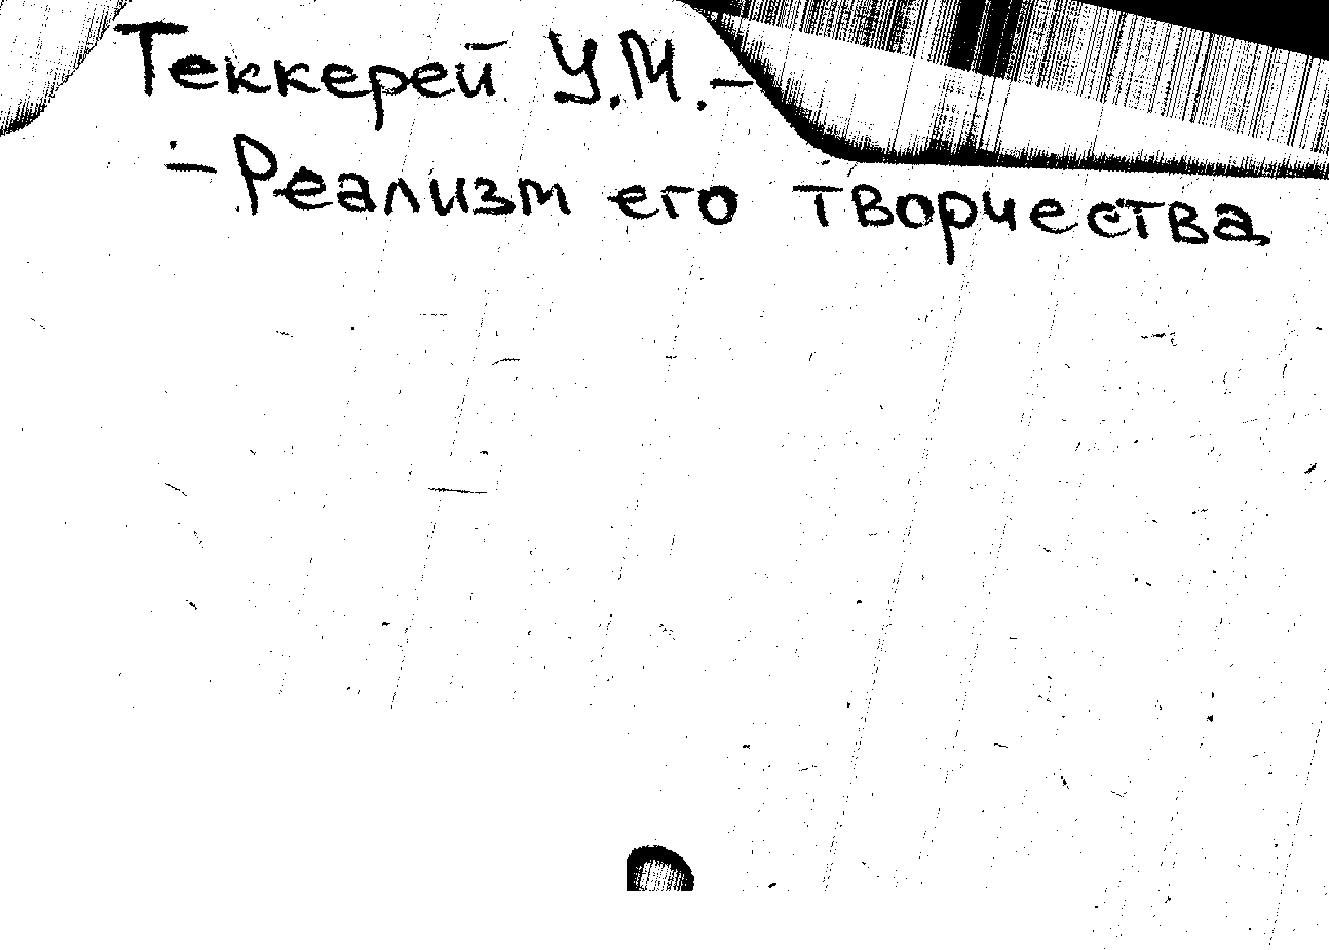 Теккерей У.М. -
- Реализм его творчества